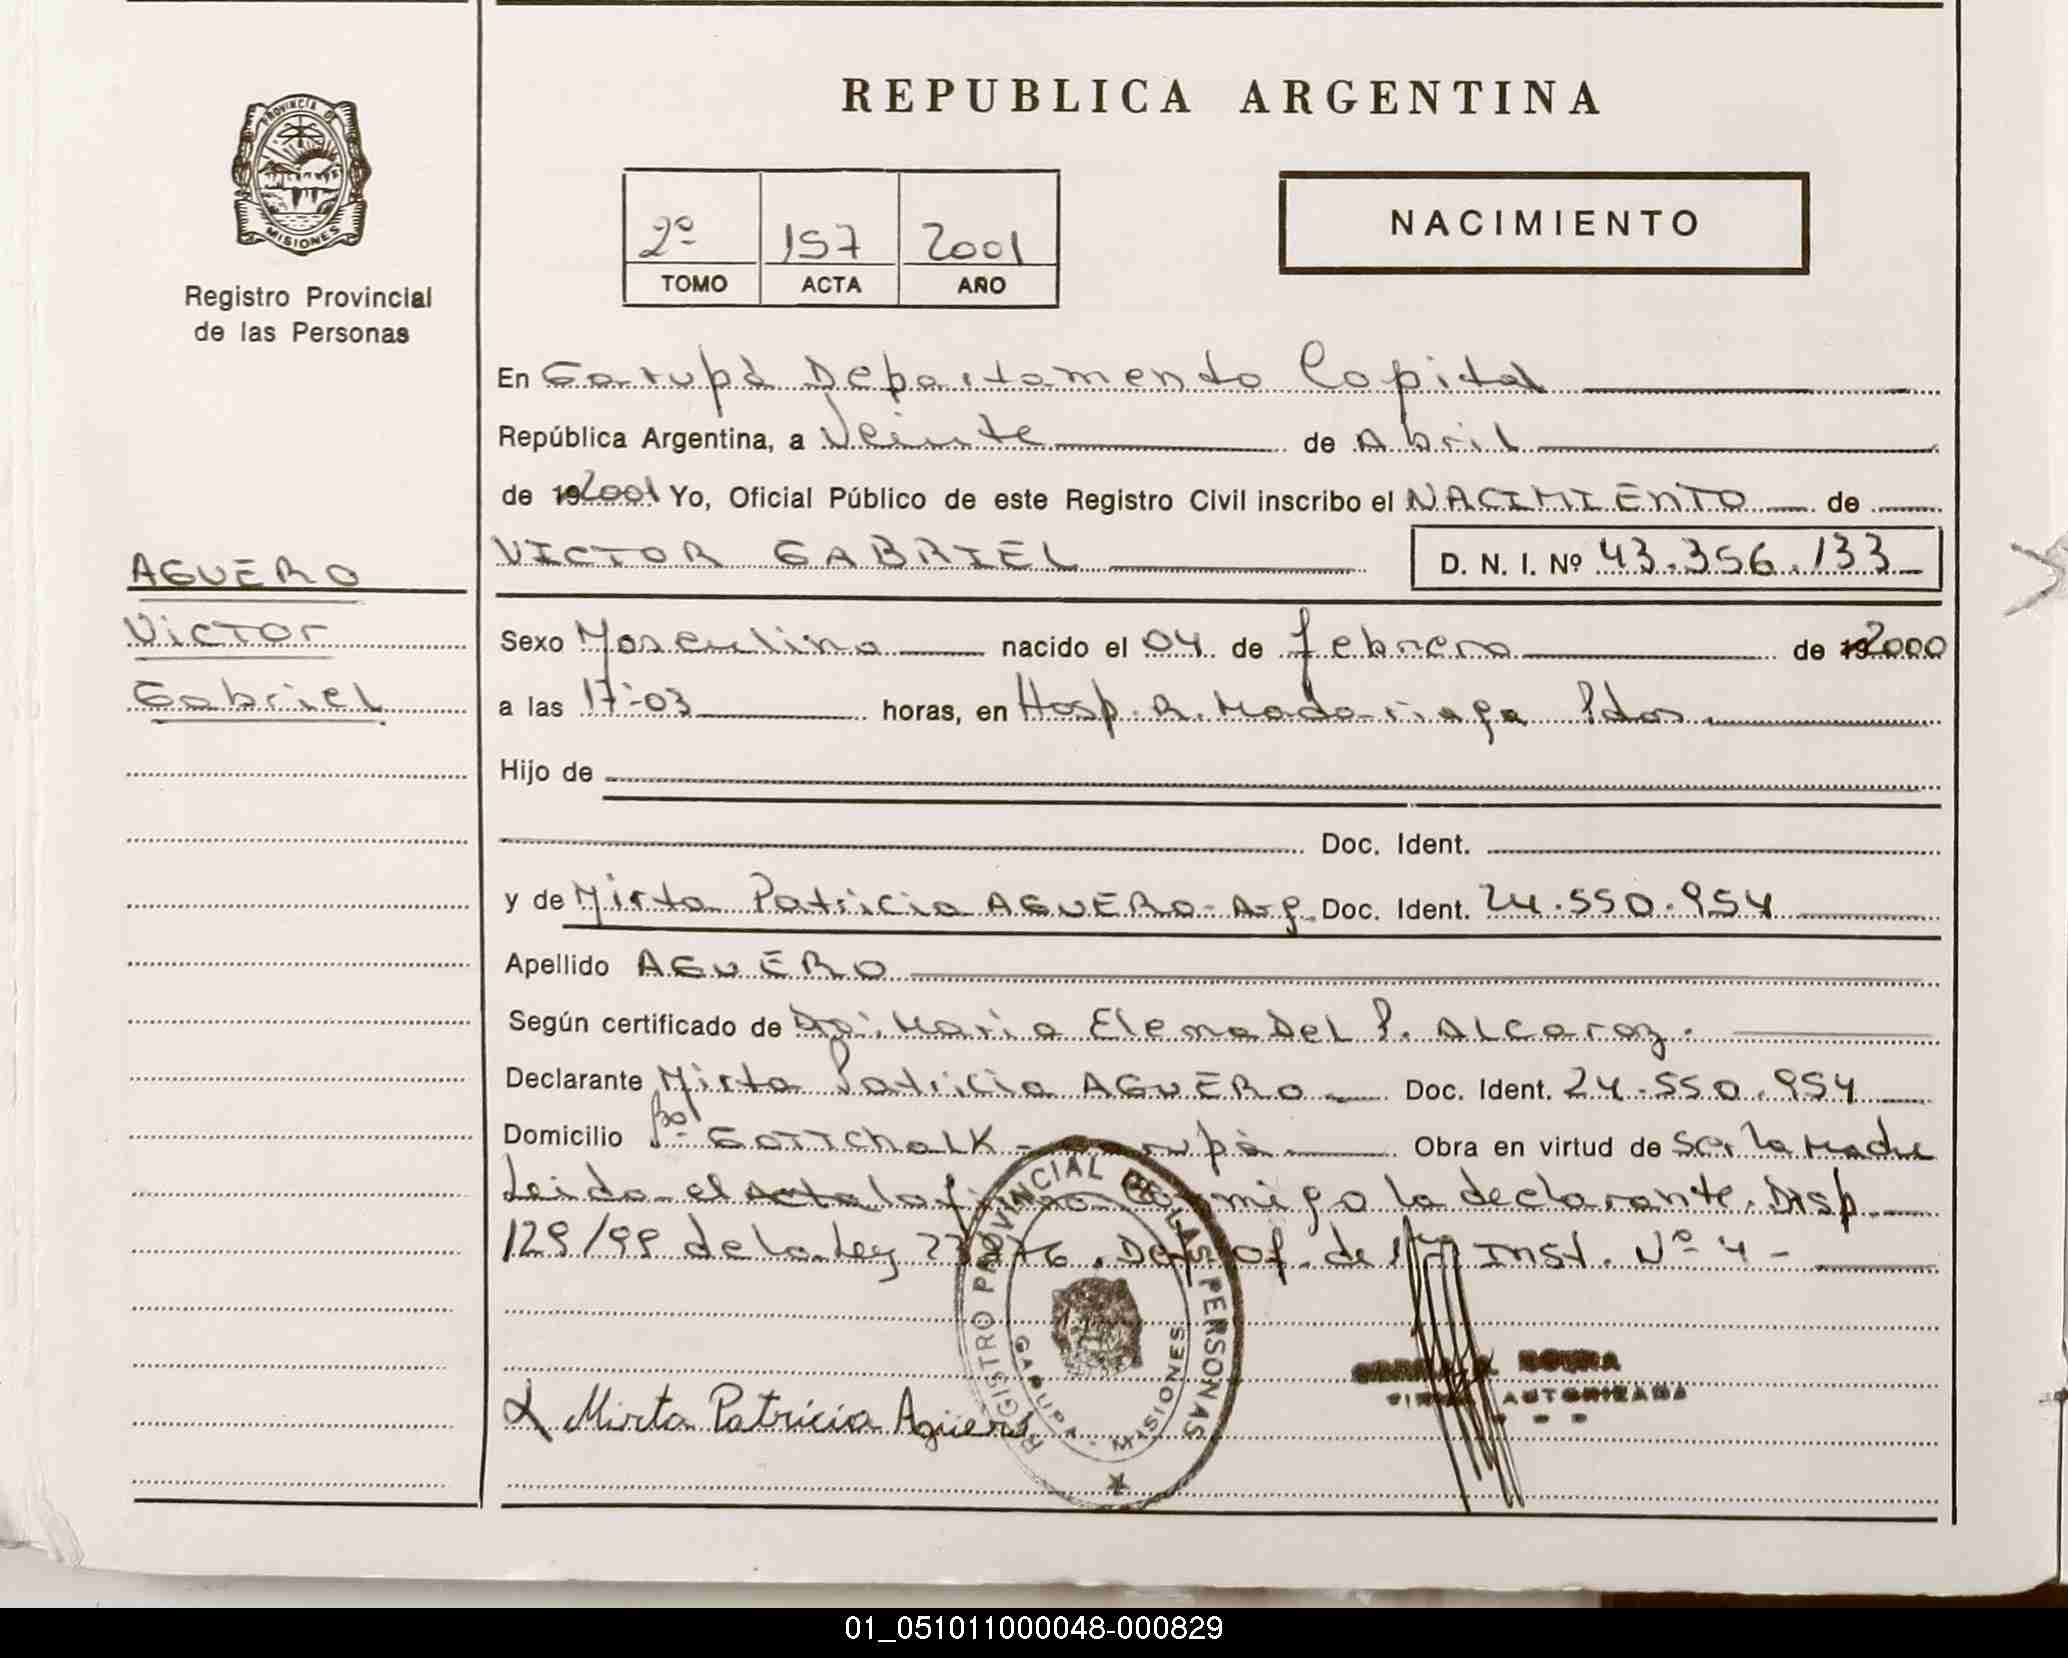 REPUBLICA ARGENTINA
PROVINCIA DE
MISIONES
Registro Provincial
de las Personas
2º 157 2001
TOMO ACTA AÑO
NACIMIENTO
En Garupá Departamento Capital
República Argentina, a Veinte de Abril
de 192001 Yo, Oficial Público de este Registro Civil inscribo el NACIMIENTO de
VICTOR GABRIEL D. N. I. Nº 43.356.133
AGUERO
Victor
Gabriel
Sexo Masculino nacido el 04 de febrero de 192000
a las 17:03 horas, en Hosp. R. Madariaga Pdas.
Hijo de
Doc. Ident.
y de Mirta Patricia AGUERO - Arg. Doc. Ident. 24.550.954
Apellido AGUERO
Según certificado de Dra. Maria Elena Del P. Alcaraz.
Declarante Mirta Patricia AGUERO Doc. Ident. 24.550.954
Domicilio Bº Gottchalk - Obra en virtud de Ser la Madre
Leida el acta la firma conmigo la declarante. Disp.
129/99 de la Ley Def. Of. de 1ra Inst. Nº 4 -
REGISTRO PROVINCIAL DE LAS PERSONAS
GARUPA - MISIONES
AUTORIZADA
X Mirta Patricia Agüero
01_051011000048-000829